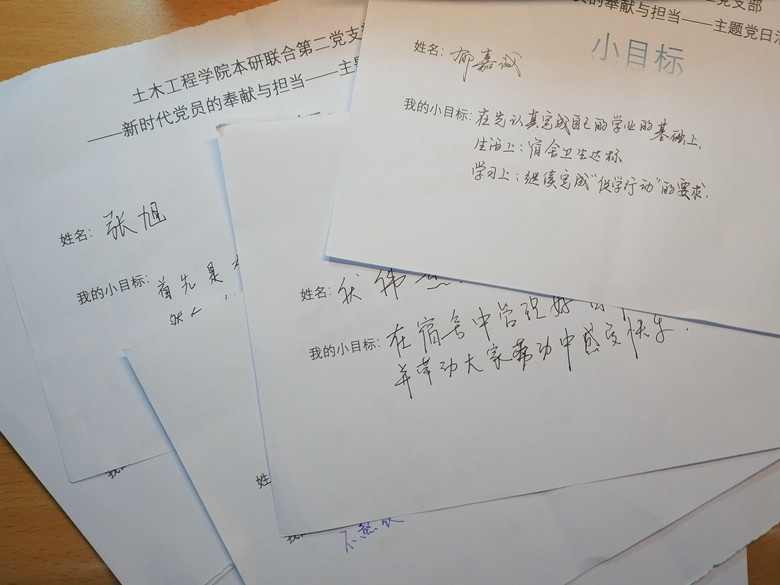 二党支部
员的奉献与担当——主题党日活
小目标
姓名：郁嘉诚
我的小目标：在先认真完成自己的学业的基础上，
生活上：宿舍卫生达标
学习上：继续完成“促学行动”的要求。
土木工程学院本研联合第二党支
——新时代党员的奉献与担当——主题
姓名：张旭
我的小目标：首先是
姓名：
我的小目标：在宿舍中管理好
并带动大家劳动中感受快乐.
姓
我